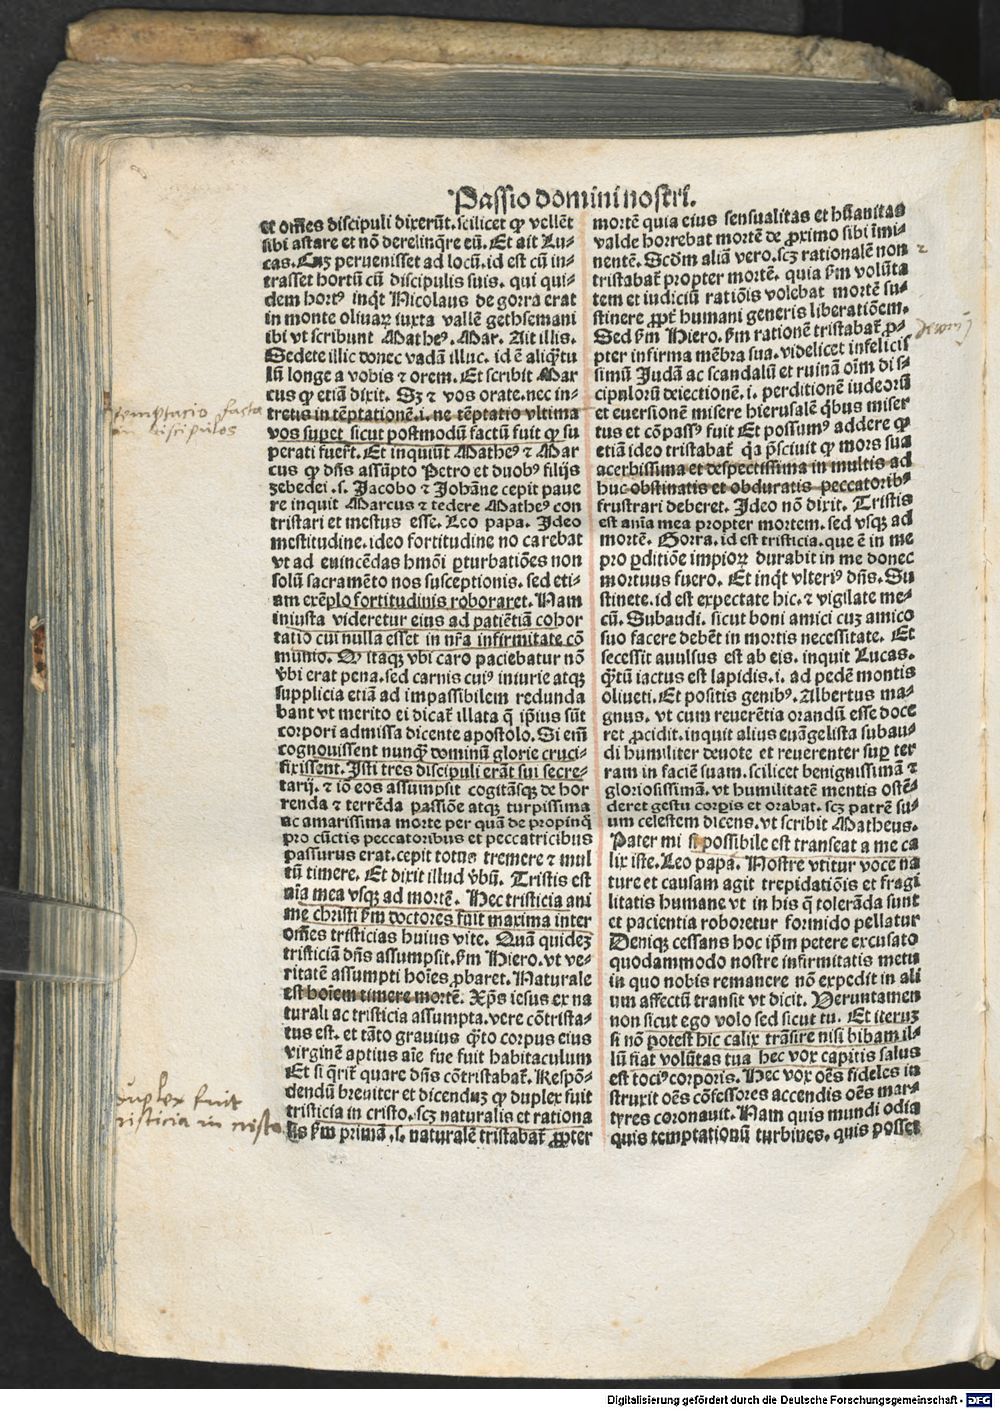 Passio domini nostri.
et om̃es discipuli dixerũt. scilicet ꝙ vellẽt
sibi astare et nõ derelinq̃re eũ. Et ait Lu-
cas. Cuꝫ peruenisset ad locũ. id est cũ in-
trasset hortũ cũ discipulis suis. qui qui-
dem hortꝰ inq̃t Nicolaus de gorra erat
in monte oliuaꝝ iuxta vallẽ gethsemani
ibi vt scribunt Matheꝰ. Mar. Ait illis.
Sedete illic donec vadã illuc. id ẽ aliq̃tu
lũ longe a vobis ⁊ orem. Et scribit Mar
cus ꝙ etiã dixit. Sꝫ ⁊ vos orate. nec in-
tretis in tẽptationẽ. i. ne tẽptatio vltima
vos supet sicut postmodũ factũ fuit ꝙ su
perati fuer̃t. Et inquiũt Matheꝰ ⁊ Mar
cus ꝙ dñs assũpto Petro et duobꝰ filijs
zebedei .s. Jacobo ⁊ Johãne cepit paue
re inquit Marcus ⁊ tedere Matheꝰ con
tristari et mestus esse. Leo papa. Ideo
mestitudine. ideo fortitudine no carebat
vt ad euincẽdas hmõi ꝑturbatiões non
solũ sacramẽto nos susceptionis. sed eti-
am exẽplo fortitudinis roboraret. Nam
iniusta videretur eius ad patiẽtiã cohor
tatio cui nulla esset in nr̃a infirmitate cõ
munio. Q itaqꝫ vbi caro paciebatur nõ
vbi erat pena. sed carnis cuiꝰ iniurie atqꝫ
supplicia etiã ad impassibilem redunda
bant vt merito ei dicat̃ illata q̃ ip̃ius sũt
corpori admissa dicente apostolo. Si em̃
cognouissent nunq̃ dominũ glorie cruci-
fixissent. Isti tres discipuli erãt sui secre-
tarij. ⁊ iõ eos assumpsit cogitãsqꝫ de hor
renda ⁊ terrẽda passiõe atqꝫ turpissima
ac amarissima morte per quã de propinq̃
pro cũctis peccatoribus et peccatricibus
passurus erat. cepit totus tremere ⁊ mul
tũ timere. Et dixit illud v̾bũ. Tristis est
aĩa mea vsqꝫ ad mortẽ. Hec tristicia ani
me christi ẜm doctores fuit maxima inter
om̃es tristicias huius vite. Quã quideꝫ
tristiciã dñs assumpsit. ẜm Hiero. vt ve-
ritatẽ assumpti hoĩes ꝓbaret. Naturale
est hoĩem timere mortẽ. Xp̃s iesus ex na
turali ac tristicia assumpta. vere cõtrista-
tus est. et tãto grauius q̃to corpus eius
virginẽ aptius aĩe sue fuit habitaculum
Et si q̃rit̃ quare dñs cõtristabat̃. Respõ-
dendũ breuiter et dicenduꝫ ꝙ duplex fuit
tristicia in cristo. scꝫ naturalis et rationa
lis ẜm primã .s. naturalẽ tristabat̃ ꝓpter
mortẽ quia eius sensualitas et hũanitas
valde horrebat mortẽ de ꝓximo sibi im̃i-
nentẽ. Scd̃m aliã vero. scꝫ rationalẽ non
tristabat̃ propter mortẽ. quia ẜm volũta
tem et iudiciũ ratiõis volebat mortẽ su-
stinere ꝓpt̃ humani generis liberatiõem.
Sed ẜm Hiero. ẜm rationẽ tristabat̃ ꝓ-
pter infirma mẽbra sua. videlicet infelicis
simũ Judã ac scandalũ et ruinã oĩm di s-
cipulorũ deiectionẽ. i. perditionẽ iudeorũ
et euersionẽ misere hierusalẽ q̃bus miser
tus et cõpassꝰ fuit Et possumꝰ addere ꝙ
etiã ideo tristabat̃ q̃a p̃sciuit ꝙ mors sua
acerbissima et despectissima in multis ad
huc obstinatis et obduratis peccatoribꝰ
frustrari deberet. Ideo nõ dixit. Tristis
est aĩa mea propter mortem. sed vsqꝫ ad
mortẽ. Gorra. id est tristicia. que ẽ in me
pro ꝑditiõe impioꝝ durabit in me donec
mortuus fuero. Et inq̃t vlteriꝰ dñs. Su
stinete. id est expectate hic. ⁊ vigilate me-
cũ. Subaudi. sicut boni amici cuꝫ amico
suo facere debẽt in mortis necessitate. Et
secessit auulsus est ab eis. inquit Lucas.
q̃tũ iactus est lapidis. i. ad pedẽ montis
oliueti. Et positis genibꝰ. Albertus ma-
gnus. vt cum reuerẽtia orandũ esse doce
ret ꝓcidit. inquit alius euãgelista subau-
di humiliter deuote et reuerenter suꝑ ter
ram in faciẽ suam. scilicet benignissimã ⁊
gloriosissimã. vt humilitatẽ mentis ostẽ-
deret gestu corꝑis et orabat. scꝫ patrẽ su-
um celestem dicens. vt scribit Matheus.
Pater mi si possibile est transeat a me ca
lix iste. Leo papa. Nostre vtitur voce na
ture et causam agit trepidatiõis et fragi
litatis humane vt in his q̃ tolerãda sunt
et pacientia roboretur formido pellatur
Deniqꝫ cessans hoc ip̃m petere excusato
quodammodo nostre infirmitatis metu
in quo nobis remanere nõ expedit in ali
um affectũ transit vt dicit. Veruntamen
non sicut ego volo sed sicut tu. Et iteruꝫ
si nõ potest hic calix trãsire nisi bibam il-
lũ fiat volũtas tua hec vox capitis salus
est tociꝰ corporis. Hec vox oẽs fideles in
struxit oẽs cõfessores accendis oẽs mar-
tyres coronauit. Nam quis mundi odia
quis temptationũ turbines. quis posset
temptacio facta
in discipulos
duplex fuit
tristicia in cristo
Digitalisierung gefördert durch die Deutsche Forschungsgemeinschaft - DFG